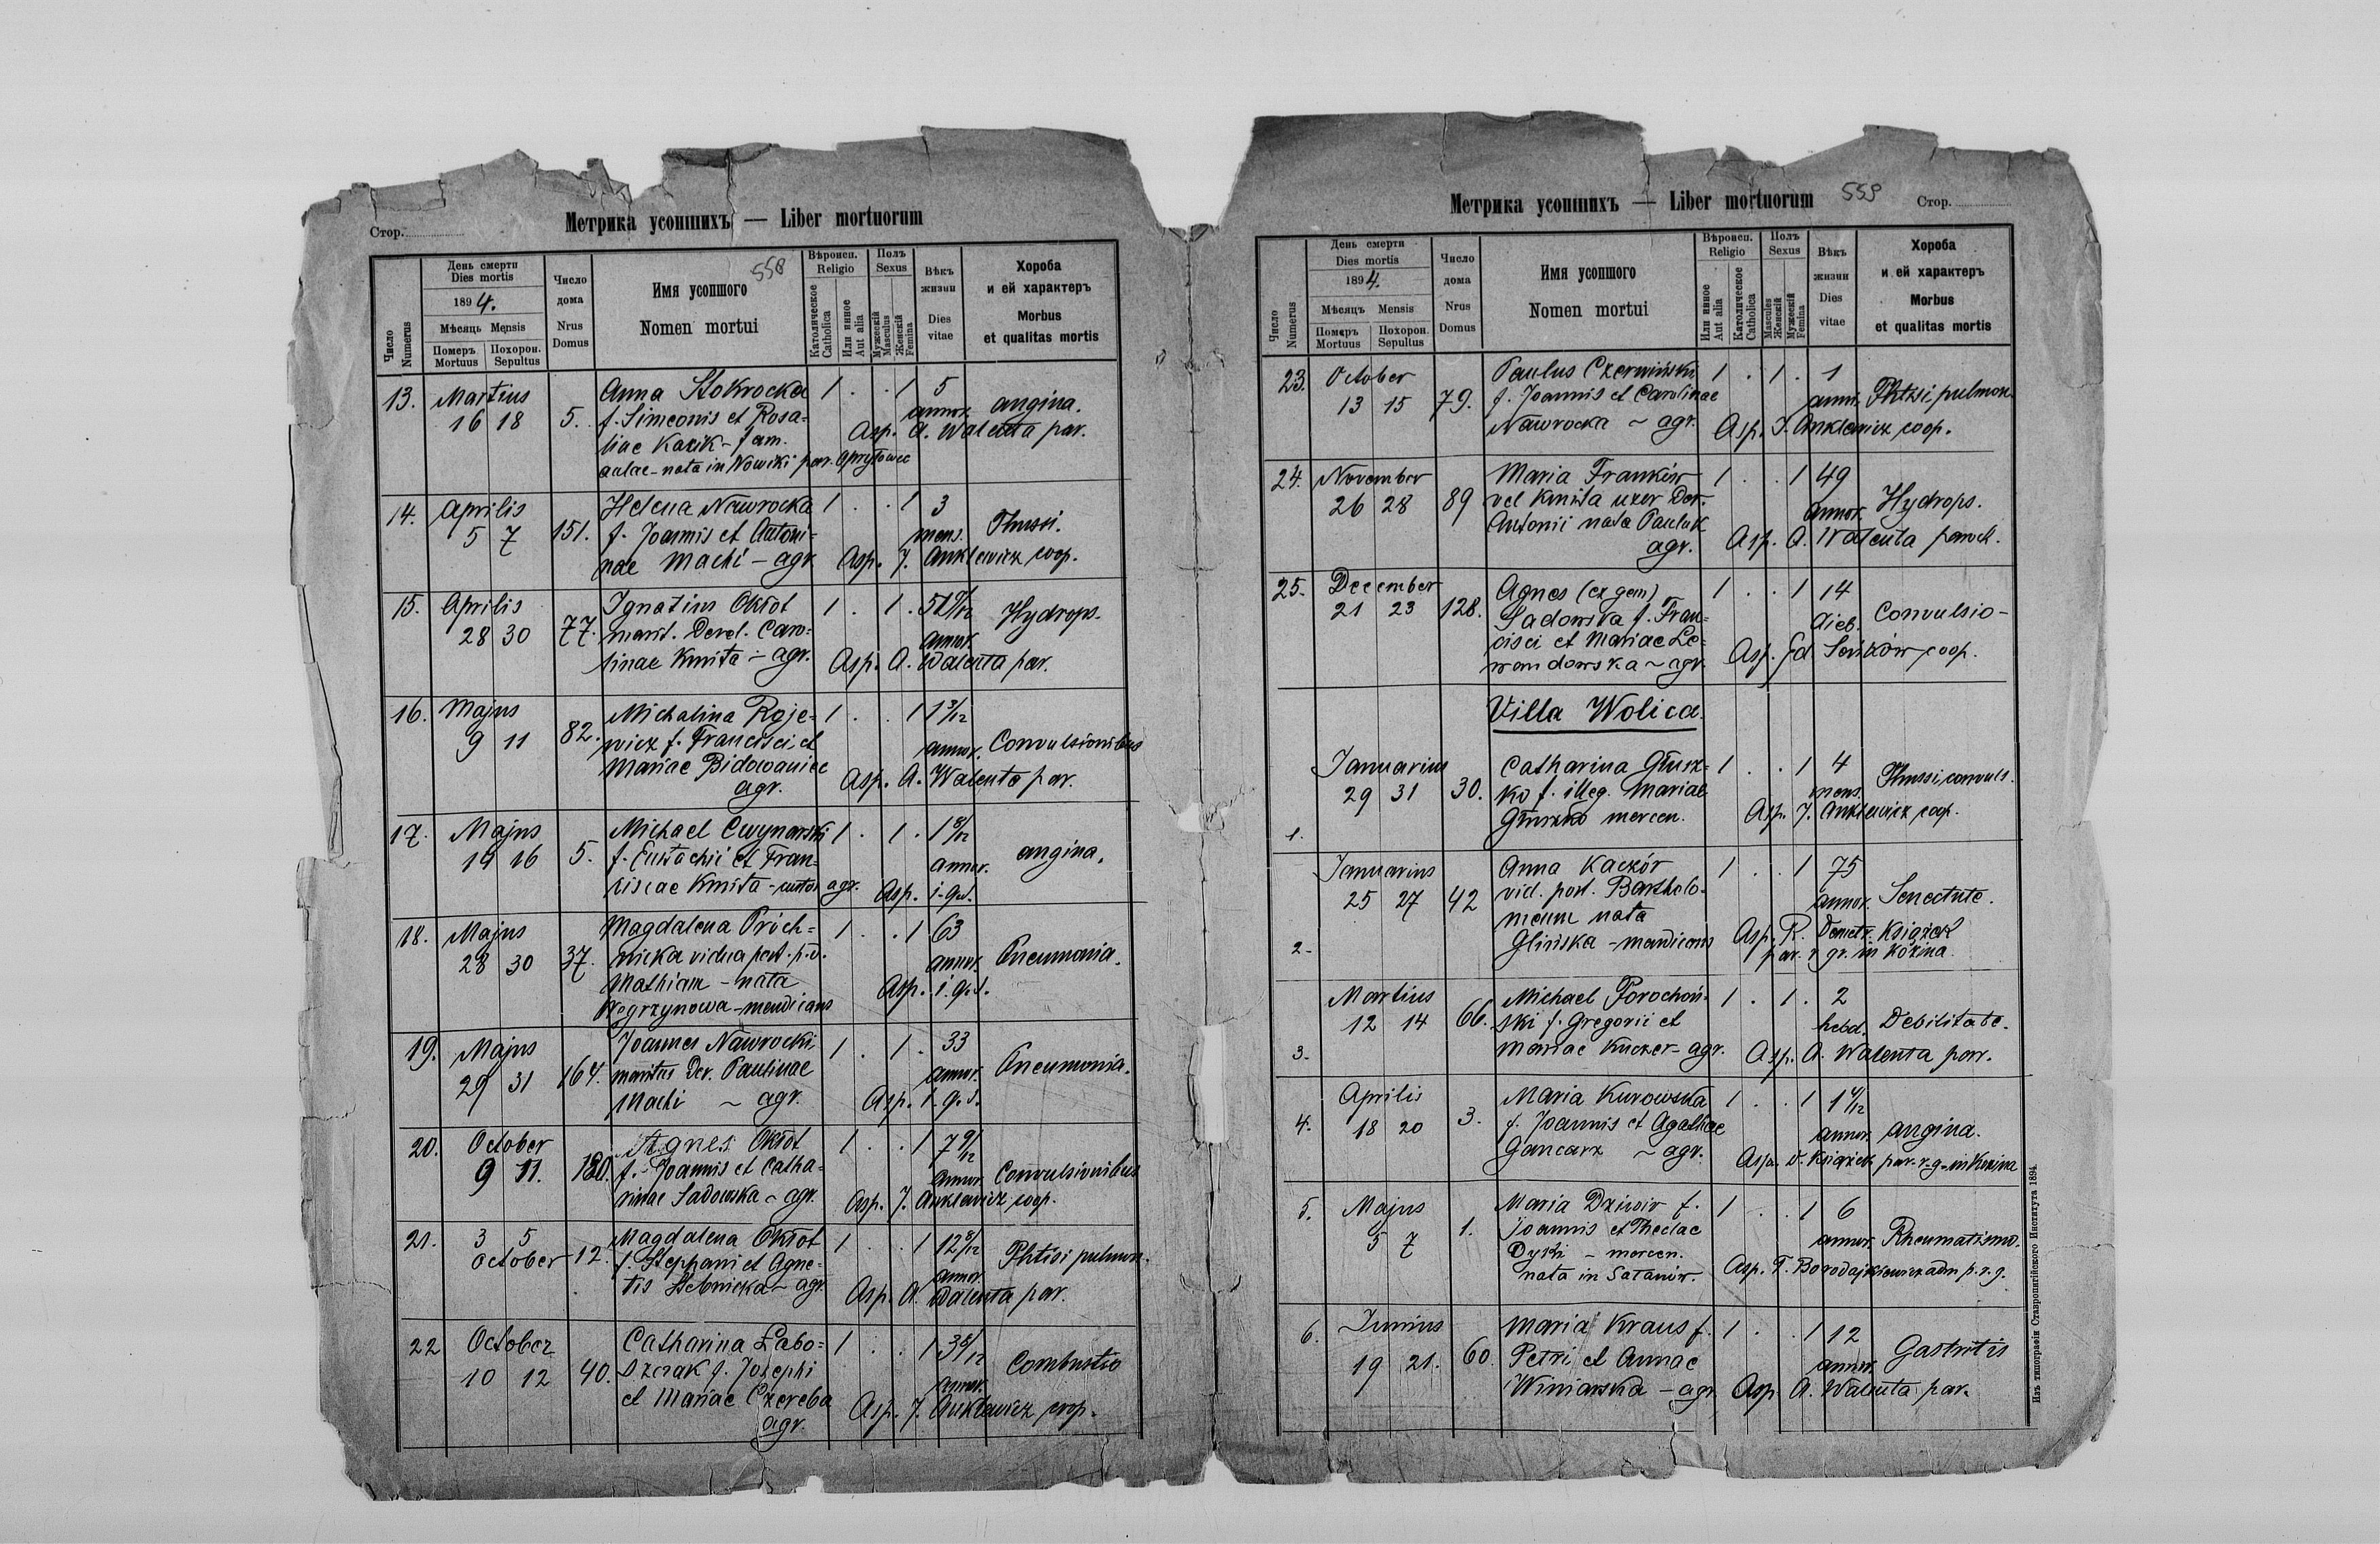 Стор.
Метрика усопшихъ — Liber mortuorum
558
Число Numerus
День смерти
Dies mortis
1894.
Мѣсяць Mensis
Померъ Mortuus
Похорон. Sepultus
Число дома
Nrus Domus
Имя усопшого
Nomen mortui
Вѣроисп. Religio
Католическое Catholica
Или инное Aut alia
Полъ Sexus
Мужескій Masculus
Женскій Femina
Вѣкъ жизни
Dies vitae
Хороба и ей характеръ
Morbus et qualitas mortis
13. Martius 5. Anna Stokrocka 1 . . 1 5
16 18 f. Simeonis et Rosa- annor. angina.
liae Kazik - fam. Asp. A. Walenta par.
aulae - nata in Nowiki par.
14. Aprilis 151. Helena Nawrocka 1 . . 1 3
5 7 f. Joannis et Antoni- mens. Thussi.
nae Machi - agr. Asp. J. Anklewicz coop.
15. Aprilis 77. Ignatius Okřot 1 . 1 .
28 30 marit. Derel. Caro- annor. Hydrops.
linae Kmita - agr. Asp. A. Walenta par.
16. Majus 82. Michalina Raje- 1 . . 1 1 3/12
9 11 wicz f. Francisci et annor. Convulsionibus
Mariae Bidowaniec Asp. A. Walenta par.
agr.
17. Majus 5. Michael Cwynarski 1 . 1 . 1 8/12
16 f. Eustachii et Fran- annor. angina.
ciscae Kmita - custos agr. Asp. i. q. s.
18. Majus 37. Magdalena Próch- 1 . . 1 63
28 30 nicka vidua post. p. d. annor. Pneumonia.
Mathiam - nata Asp. i. q. s.
Węgrzynowa - mendicans
19. Majus 164. Joannes Nawrocki 1 . 1 . 33
29 31 maritus Der. Paulinae annor. Pneumonia.
Machi - agr. Asp. i. q. s.
20. October Agnes Okřot 1 . . 1 7 9/12
9 11. f. Joannis et Catha- annor. Convulsionibus
rinae Sadowska - agr. Asp. J. Anklewicz coop.
21. 3 5 12. Magdalena Okřot 1 . . 1 12 8/12
October f. Stephani et Agne- annor. Phtisi pulmon.
tis Stebnicka - agr. Asp. A. Walenta par.
22 October 40. Catharina Łabo- 1 . . 1
10 12 szczak f. Josephi annor. Combustio
et Mariae Czereba Asp. J. Anklewicz coop.
agr.
Метрика усопшихъ — Liber mortuorum
559
Стор.
Число Numerus
День смерти
Dies mortis
1894.
Мѣсяць Mensis
Померъ Mortuus
Похорон. Sepultus
Число дома
Nrus Domus
Имя усопшого
Nomen mortui
Вѣроисп. Religio
Или инное Aut alia
Католическое Catholica
Полъ Sexus
Masculus
Женскій
Мужескій
Femina
Вѣкъ жизни
Dies vitae
Хороба и ей характеръ
Morbus et qualitas mortis
23. October 79. Paulus Czerwiński 1 . 1 . 1
13 15 f. Joannis et Carolinae anni. Phtisi pulmon.
Nawrocka - agr. Asp. J. Anklewicz coop.
24. November 89 Maria Frankiw 1 . . 1 49
26 28 vel Kmita uxor Der. annor. Hydrops.
Antonii nata Pauluk Asp. A. Walenta paroch.
agr.
25. December 128. Agnes (ex gem) 1 . . 1 14
21 23 Sadowska f. Fran- dieb. Convulsio-
cisci et Mariae Le- Asp. Ed. coop.
wandowska - agr.
Villa Wolica.
Januarius 30. Catharina Głusz- 1 . . 1 4
29 31 ko f. illeg. Mariae mens. Thussi convuls.
1. Głuszko mercen. Asp. J. Anklewicz coop.
Januarius 42 Anna Kaczór 1 . . 1 75
25 27 vid. post. Bartholo- annor. Senectute.
meum nata Asp. R. Demetr. Książek
2. Glińska - mendicans par. r. gr. in Kozina.
Martius 66. Michael Porochoń- 1 . 1 . 2
12 14 ski f. Gregorii et hebd. Debilitate.
3. Mariae Kuczer - agr. Asp. A. Walenta par.
Aprilis 3. Maria Kurowska 1 . . 1 1 4/12
4. 18 20 f. Joannis et Agathae annor. angina.
Gancarz - agr. Asp. D. Książek par. r. g. in Kozina
5. Majus 1. Maria Dziwir f. 1 . . 1 6
5 7 Joannis et Theclae annor. Rheumatismo.
Dyki - mercen. Asp. T. Borodajkiewicz adm p. r. g.
nata in Satanów.
6. Junius 60. Maria Kraus f. 1 . . 1 12
19 21. Petri et Annae annor. Gastritis
Winiarska - agr. Asp. A. Walenta par.
Изъ типографіи Ставропигійского Института 1894.